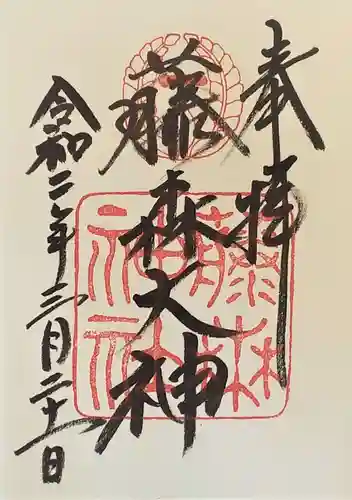 奉拝
藤森大神
藤森
神社
令和二年三月二十一日